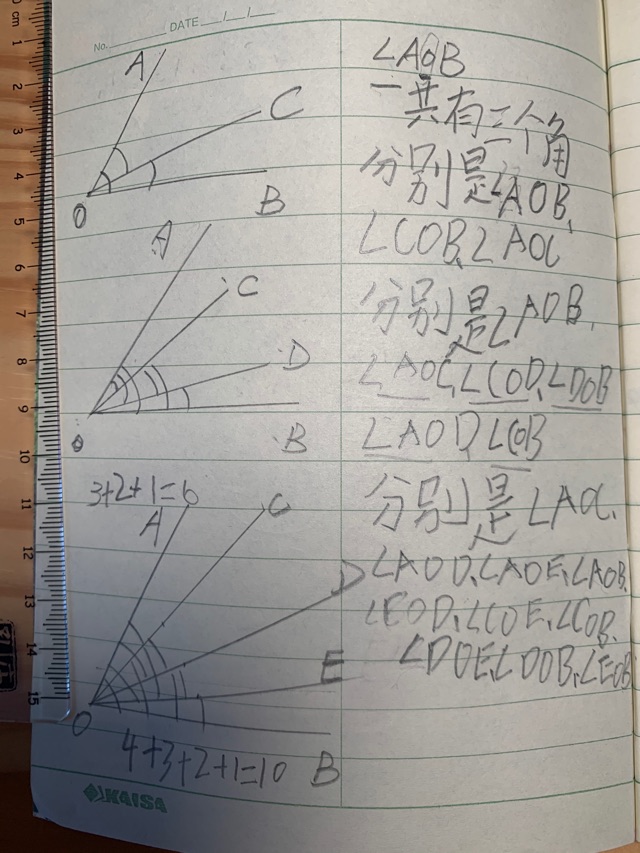 No. DATE / /
A
C
O
B
∠AOB
一共有三个角
分别是∠AOB、
∠COB、∠AOC
A
C
D
O
B
分别是∠AOB、
∠AOC、∠COD、∠DOB
∠AOD、∠COB
3+2+1=6
A
C
D
E
O
B
4+3+2+1=10
分别是∠AOC、
∠AOD、∠AOE、∠AOB、
∠EOD、∠COE、∠COB、
∠DOE、∠DOB、∠EOB
KAISA
cm
1
2
3
4
5
6
7
8
9
10
11
12
13
14
15